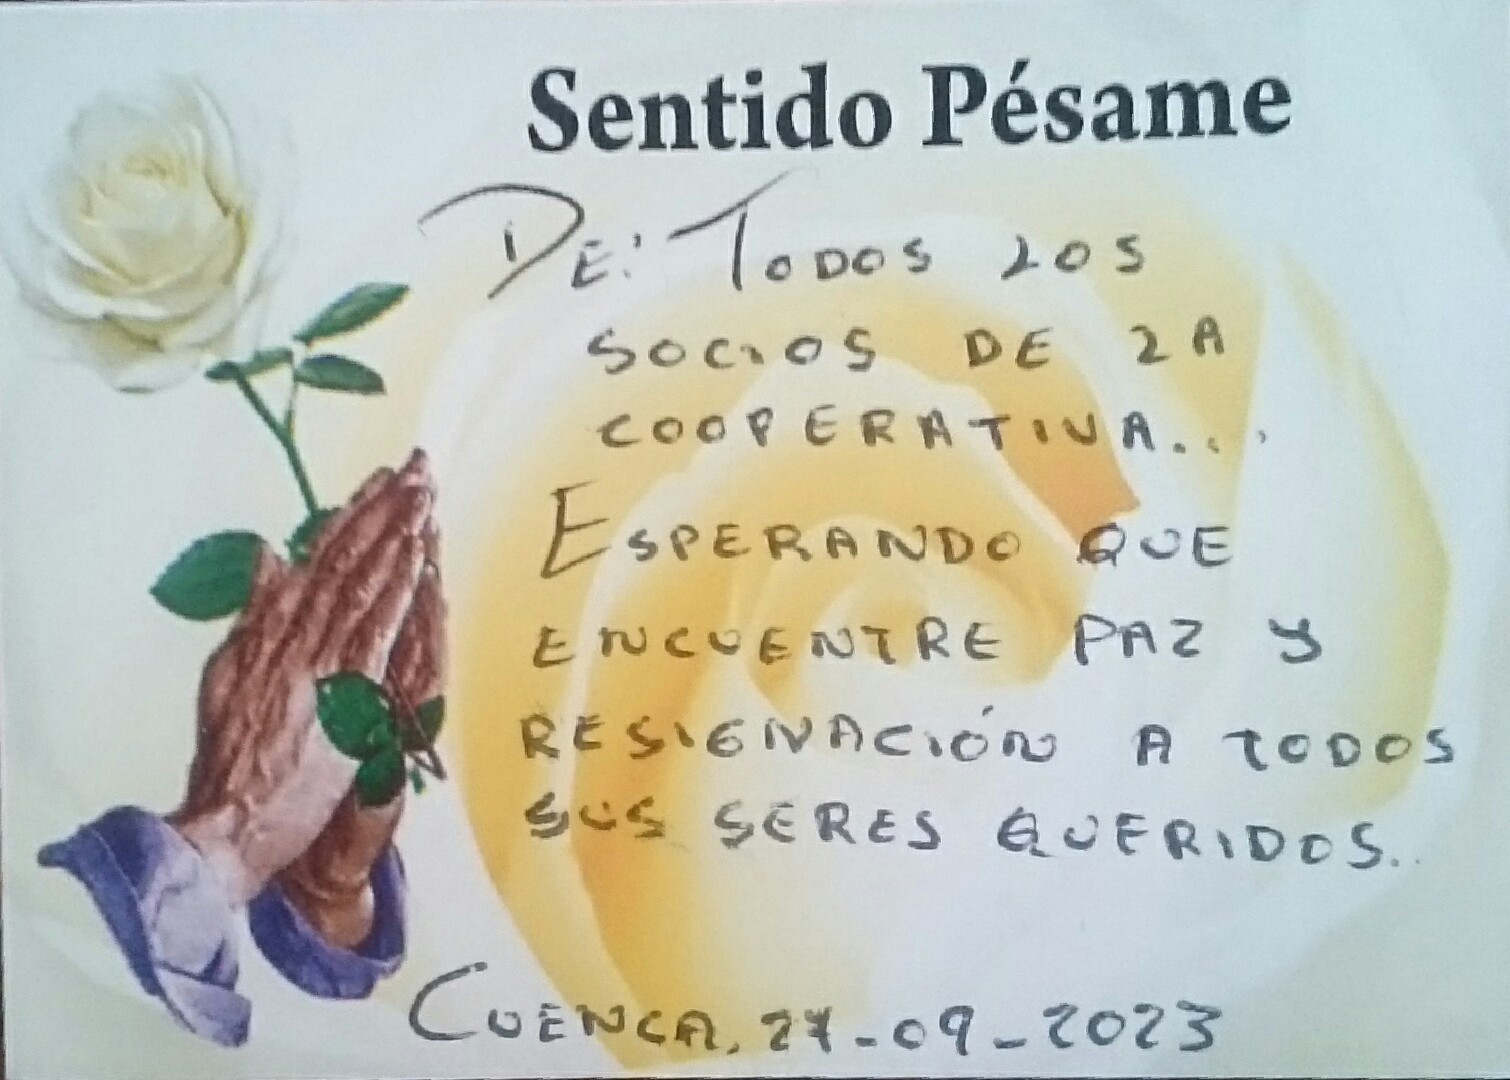 Sentido Pésame
DE: TODOS LOS
SOCIOS DE LA
COOPERATIVA...
ESPERANDO QUE
ENCUENTRE PAZ Y
RESIGNACIÓN A TODOS
SUS SERES QUERIDOS..
CUENCA, 27-09-2023